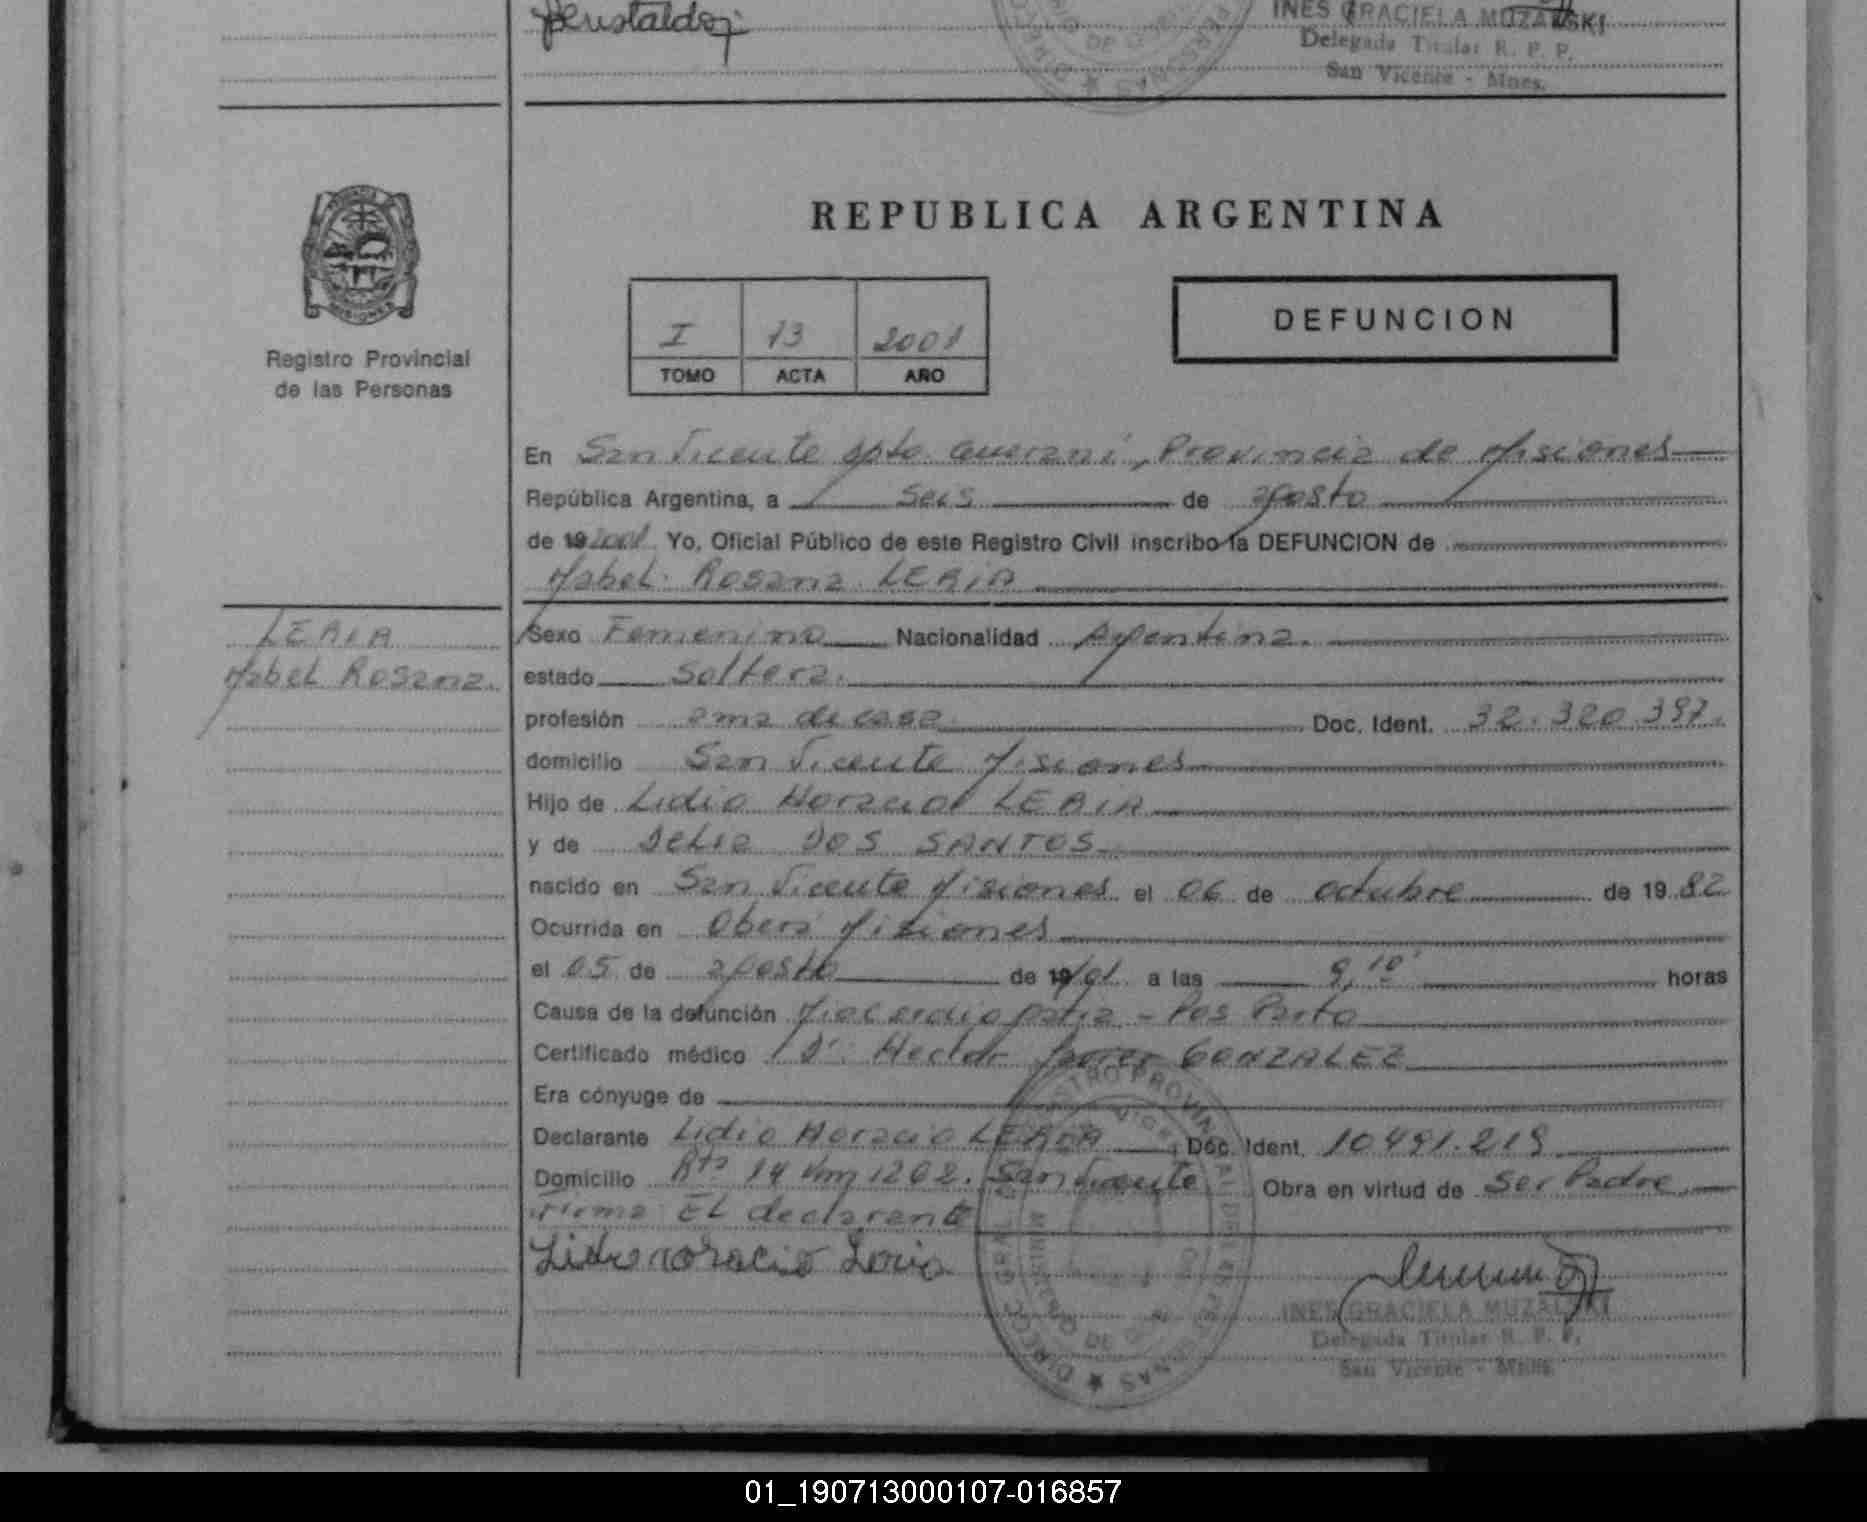 INES GRACIELA MUZALSKI
Delegada Titular R. P. P.
San Vicente - Mnes.
REPUBLICA ARGENTINA
I 13 2001
TOMO ACTA AÑO
DEFUNCION
MISIONES
Registro Provincial
de las Personas
En San Vicente Dpto. Guaraní, Provincia de Misiones
República Argentina, a seis de agosto
de 19 2001 Yo, Oficial Público de este Registro Civil inscribo la DEFUNCION de
Mabel Rosana LERIA
LERIA
Mabel Rosana.
Sexo Femenino Nacionalidad Argentina.
estado Soltera.
profesión ama de casa Doc. Ident. 32.320.397.
domicilio San Vicente Misiones
Hijo de Lidio Horacio LERIA
y de Delia DOS SANTOS
nacido en San Vicente Misiones el 06 de octubre de 19 82
Ocurrida en Oberá Misiones
el 05 de agosto de 19/01 a las 9,10' horas
Causa de la defunción Miocardiopatia - Pos Parto
Certificado médico Dr. Hector Javier GONZALEZ
Era cónyuge de
Declarante Lidio Horacio LERIA Doc. Ident. 10491.219
Domicilio Rta 14 Km 1262. San Vicente Obra en virtud de Ser Padre
Firma El declarante
INES GRACIELA MUZALSKI
Delegada Titular R. P. P.
San Vicente - Mnes.
01_190713000107-016857